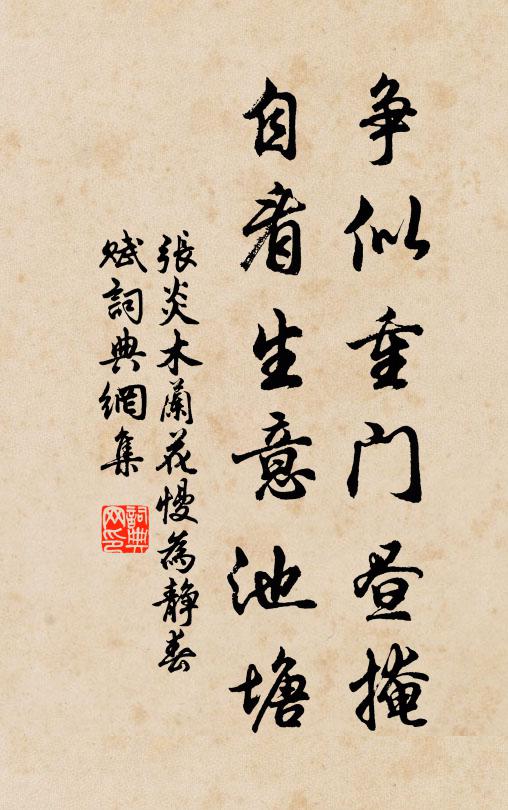 争似重門昼掩
自看生意池塘
張炎木蘭花慢為静春
賦詞典網集
詞典网印